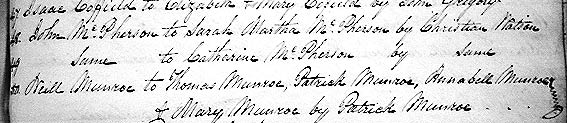 Isaac Cofield to Elizabeth & Mary Cofield by John Gregory
48. John Mc.Pherson to Sarah Martha Mc.Pherson by Christian Watson
49 Same to Catherine Mc.Pherson by Same
50. Neill Munroe to Thomas Munroe, Patrick Munroe, Annabell Munroe
& Mary Munroe by Patrick Munroe